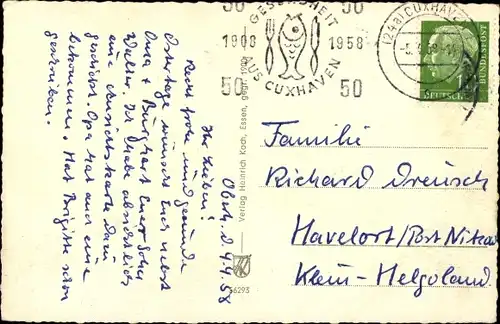 50 50
GESUNDHEIT
1908 1958
AUS CUXHAVEN
50 50
(24a) CUXHAVEN
DEUTSCHE
BUNDESPOST
Oberh. d 4.4.58
Ihr Lieben!
Recht frohe und gesunde
Ostertage wünscht Euch nebst
Oma + Burkhart Euer Sohn
Walter. Ich habe absichtlich
eine Ansichtskarte dazu
geschickt. Opa hat auch eine
bekommen. Hat Brigitte schon
geschrieben.
Verlag Heinrich Koch, Essen,
56293
Familie
Richard Dreusch
Havelort/Post
Klein-Helgoland